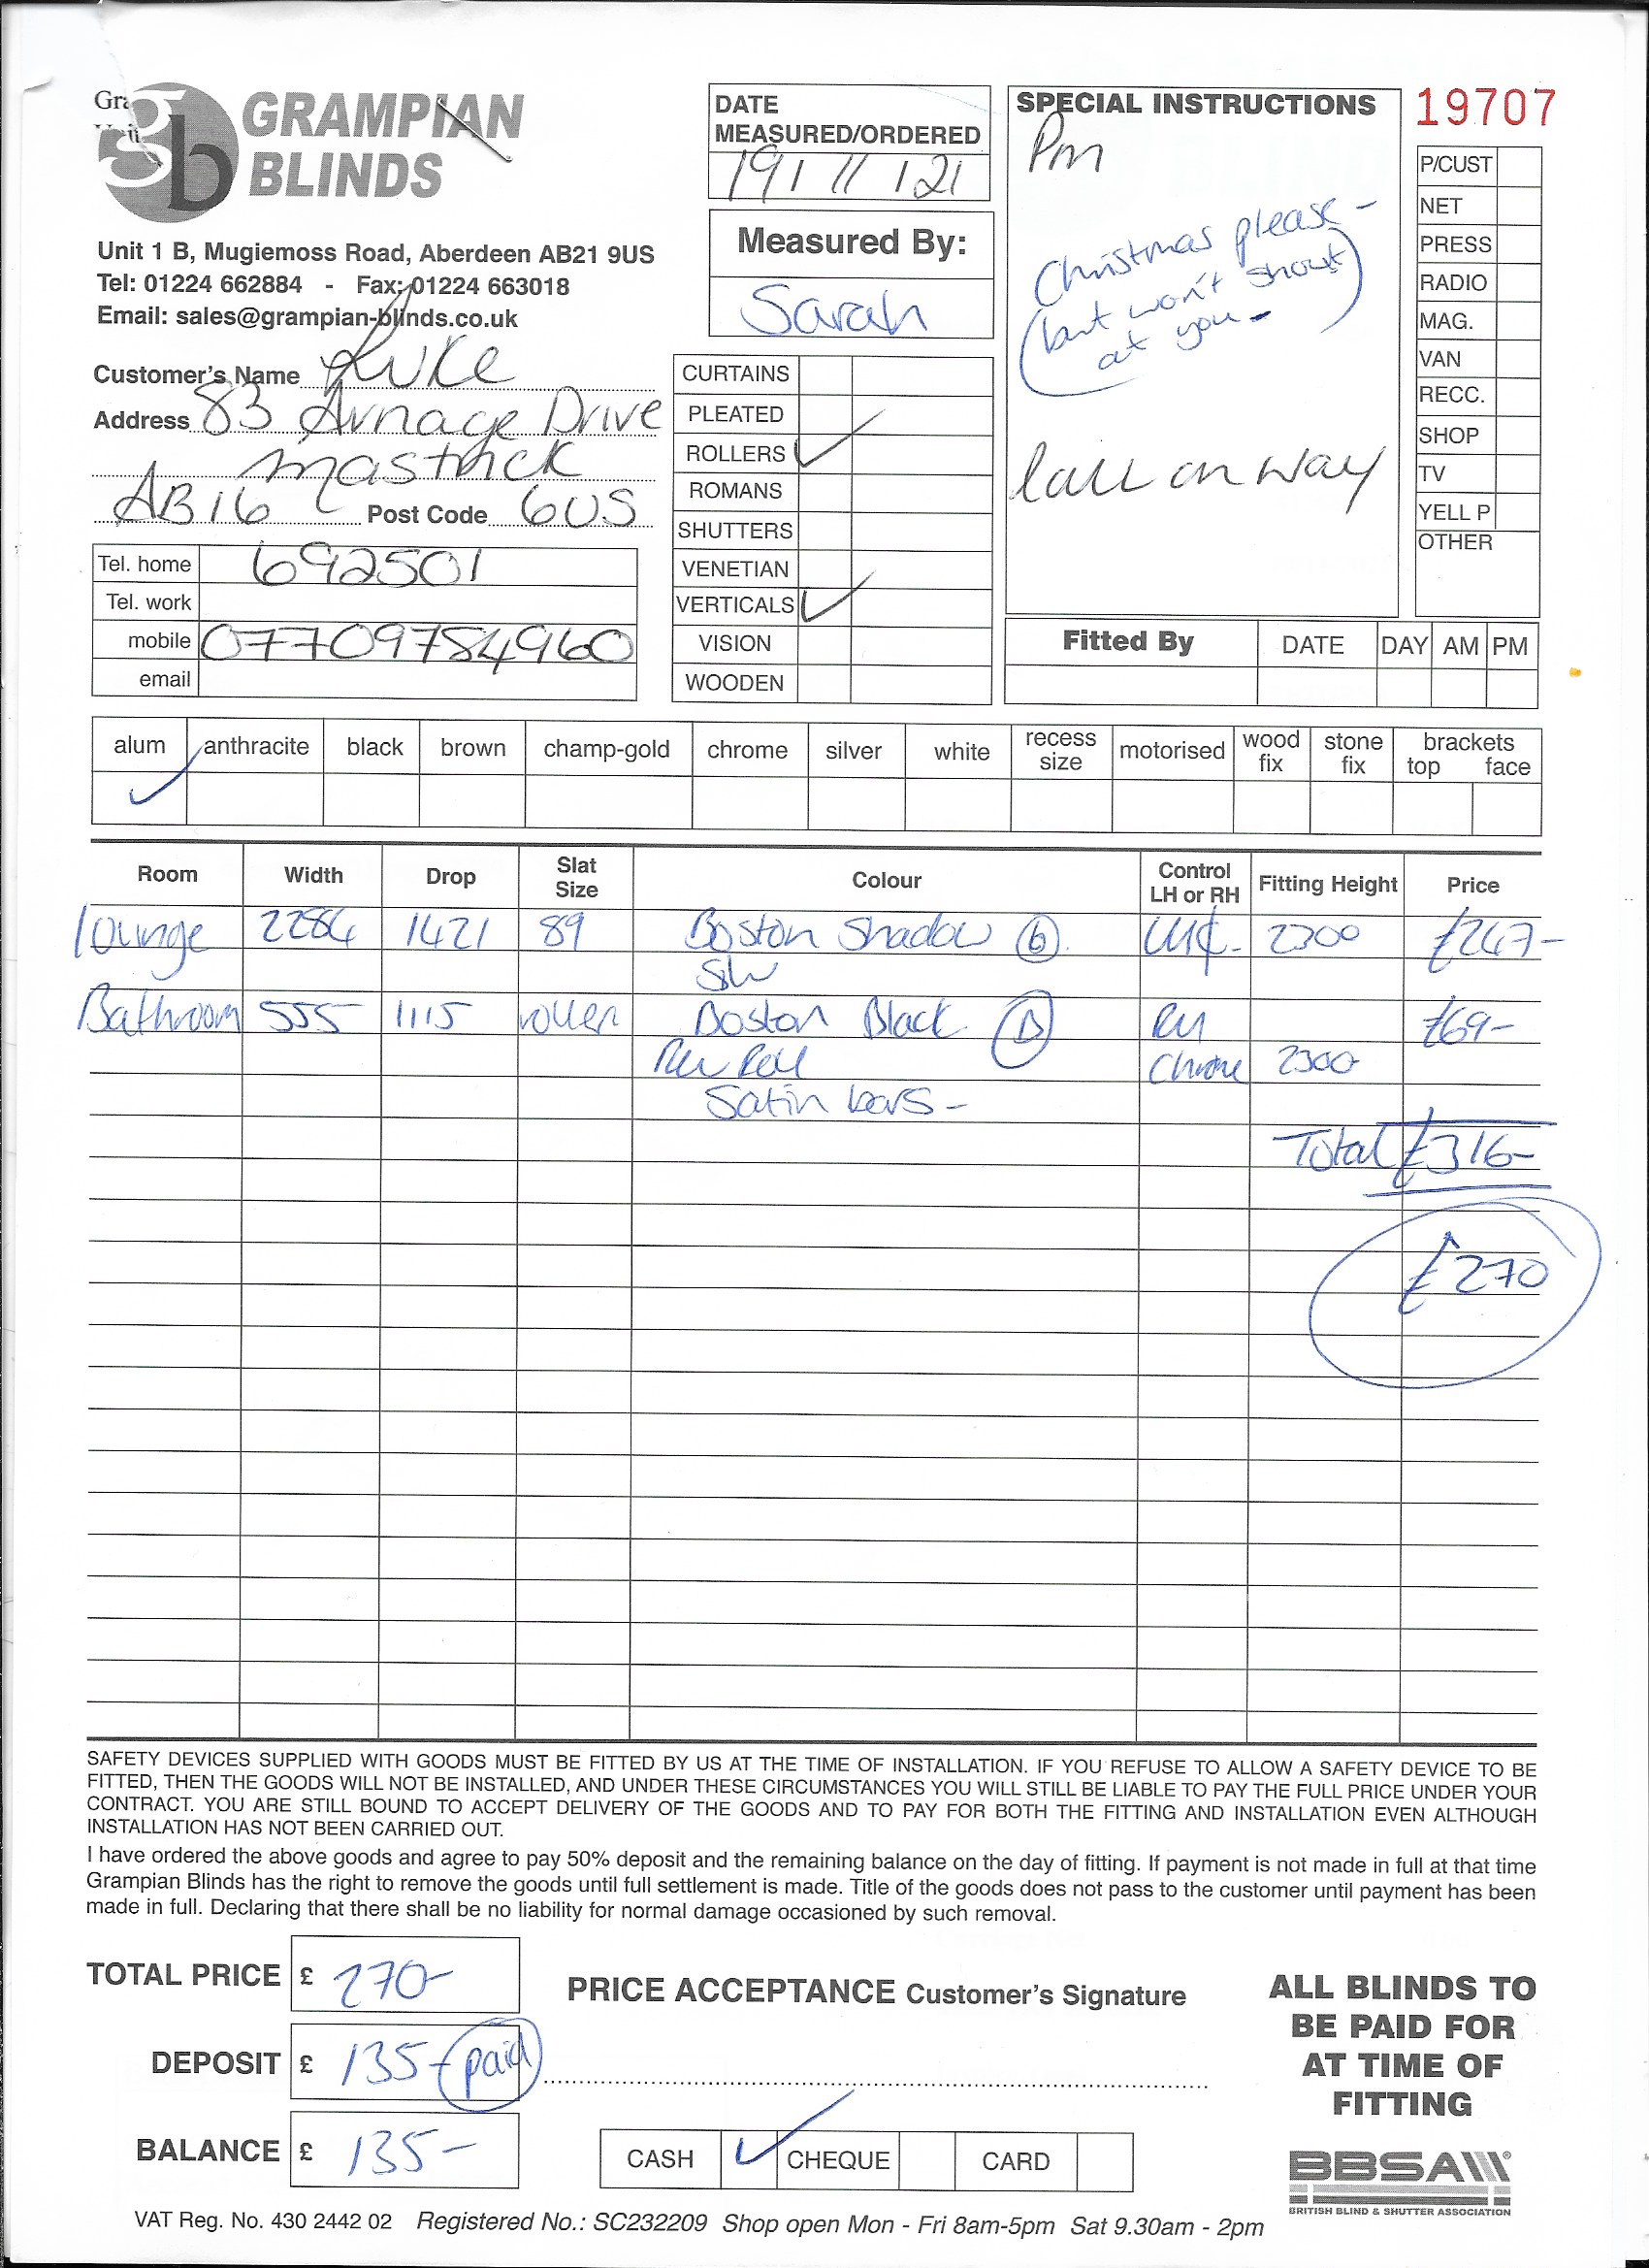 GRAMPIAN
BLINDS
Unit 1 B, Mugiemoss Road, Aberdeen AB21 9US
Tel: 01224 662884 - Fax: 01224 663018
Email: sales@grampian-blinds.co.uk
Customer's Name Luke
Address 83 Arnage Drive
Mastrick
AB16 Post Code 6US
Tel. home 692501
Tel. work
mobile 07709784960
email
DATE
MEASURED/ORDERED
19/11/21
Measured By:
Sarah
CURTAINS
PLEATED
ROLLERS ✓
ROMANS
SHUTTERS
VENETIAN
VERTICALS ✓
VISION
WOODEN
SPECIAL INSTRUCTIONS
Pm
Christmas please -
(but won't shout
at you -)
Call on way
19707
P/CUST
NET
PRESS
RADIO
MAG.
VAN
RECC.
SHOP
TV
YELL P
OTHER
Fitted By DATE DAY AM PM
alum anthracite black brown champ-gold chrome silver white recess size motorised wood fix stone fix brackets top face
✓
Room Width Drop Slat Size Colour Control LH or RH Fitting Height Price
lounge 2284 1421 89 Boston Shadow 2300 £247-
Bathroom 555 1115 roller Boston Black RH £69-
Rev Roll Chrome 2300
Satin bars -
Total £316-
£270
SAFETY DEVICES SUPPLIED WITH GOODS MUST BE FITTED BY US AT THE TIME OF INSTALLATION. IF YOU REFUSE TO ALLOW A SAFETY DEVICE TO BE
FITTED, THEN THE GOODS WILL NOT BE INSTALLED, AND UNDER THESE CIRCUMSTANCES YOU WILL STILL BE LIABLE TO PAY THE FULL PRICE UNDER YOUR
CONTRACT. YOU ARE STILL BOUND TO ACCEPT DELIVERY OF THE GOODS AND TO PAY FOR BOTH THE FITTING AND INSTALLATION EVEN ALTHOUGH
INSTALLATION HAS NOT BEEN CARRIED OUT.
I have ordered the above goods and agree to pay 50% deposit and the remaining balance on the day of fitting. If payment is not made in full at that time
Grampian Blinds has the right to remove the goods until full settlement is made. Title of the goods does not pass to the customer until payment has been
made in full. Declaring that there shall be no liability for normal damage occasioned by such removal.
TOTAL PRICE £ 270-
DEPOSIT £ 135- paid
BALANCE £ 135-
PRICE ACCEPTANCE Customer's Signature
CASH ✓ CHEQUE CARD
ALL BLINDS TO
BE PAID FOR
AT TIME OF
FITTING
BBSA
BRITISH BLIND & SHUTTER ASSOCIATION
VAT Reg. No. 430 2442 02 Registered No.: SC232209 Shop open Mon - Fri 8am-5pm Sat 9.30am - 2pm